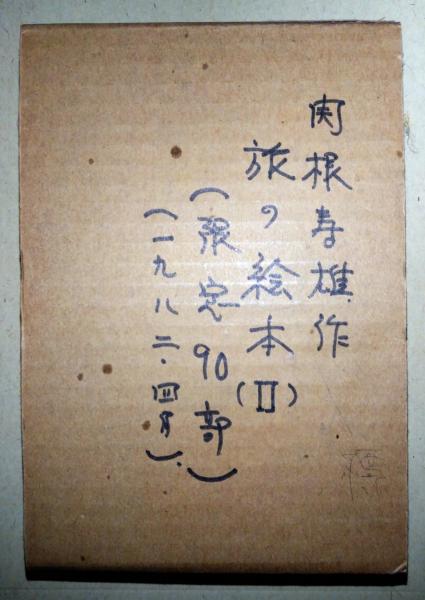 関根寿雄作
旅の絵本(II)
(限定90部)
(一九八二・四月)